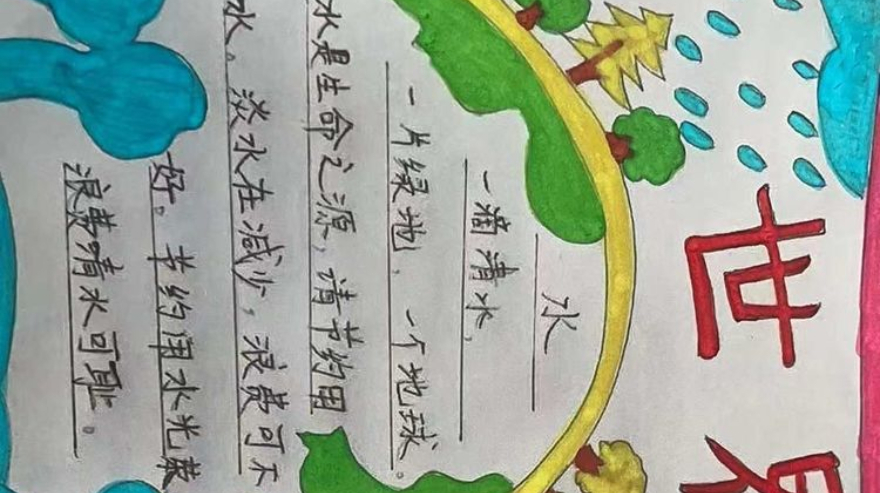 世界
水
一滴清水，
一片绿地，一个地球。
水是生命之源，请节约用
水。淡水在减少，浪费可不
好。节约用水光荣
浪费清水可耻。